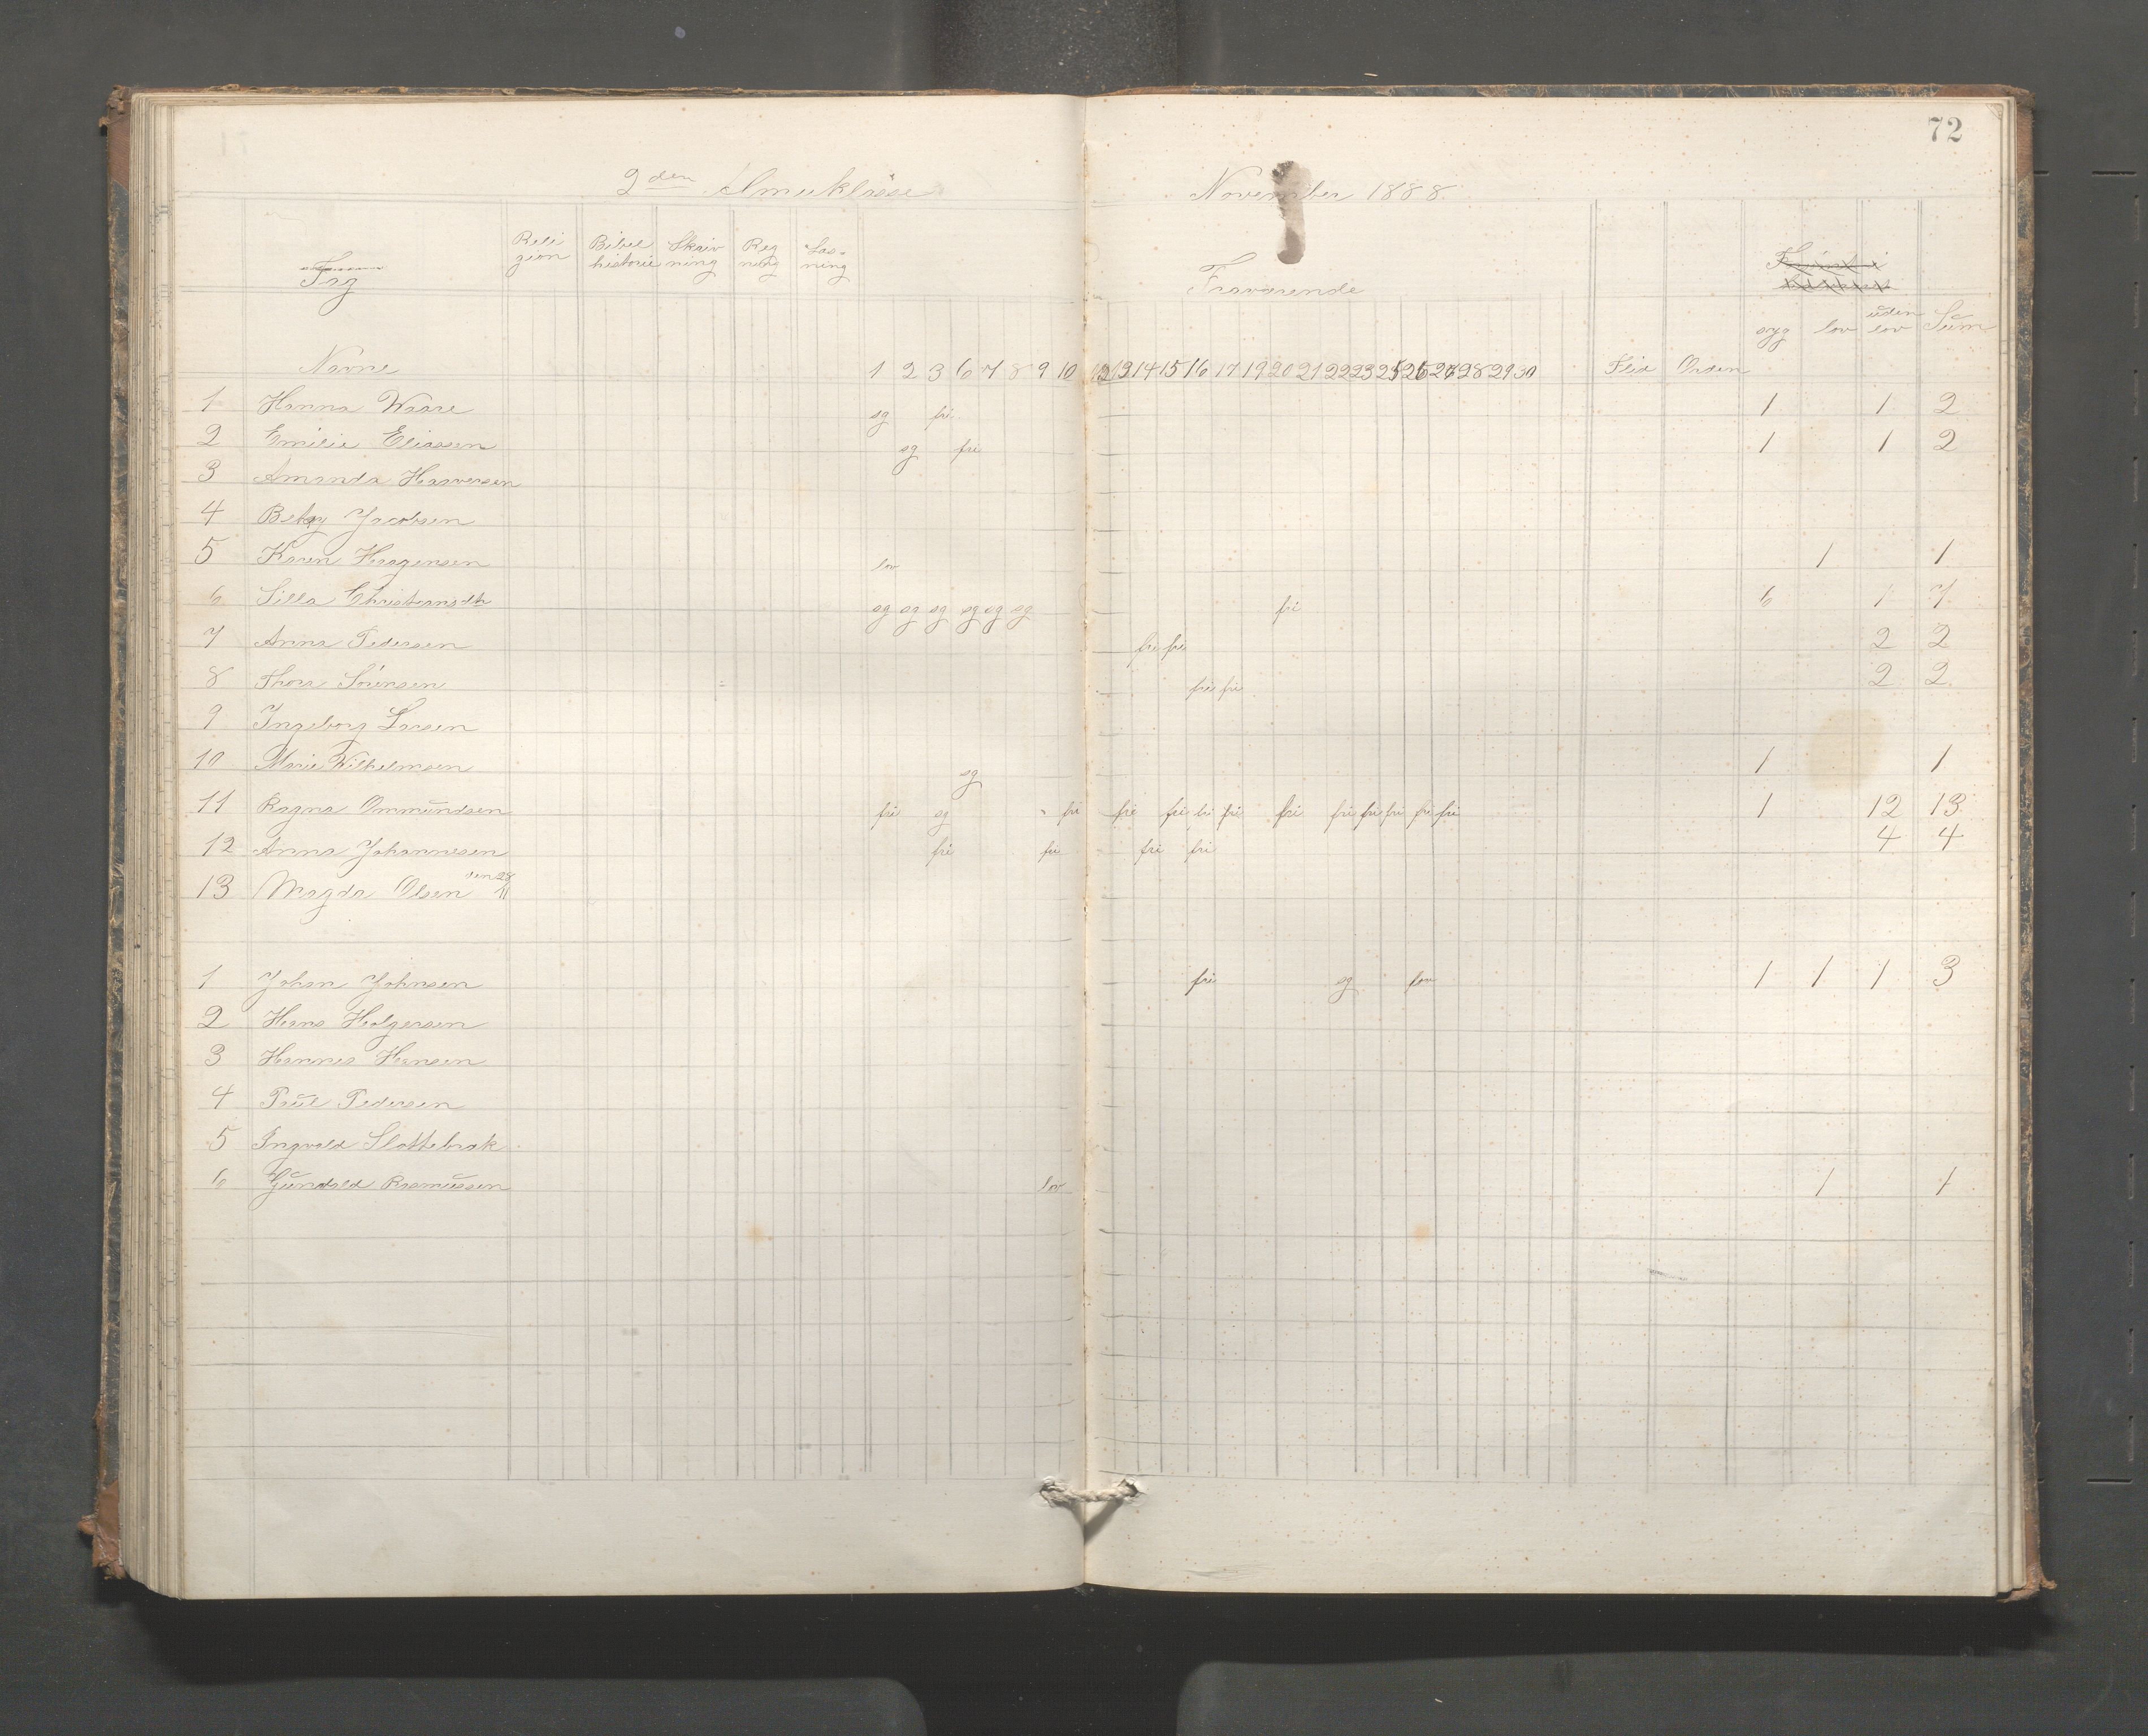 72
2den Almuklasse
November 1888.
Fag Religion Bibelhistorie Skrivning Regning Læsning Fraværende
Navne 1 2 3 6 7 8 9 10 12 13 14 15 16 17 19 20 21 22 23 25 26 27 28 29 30 Flid Orden syg lov uden lov Sum
1 Hanna Waare sg fri 1 1 2
2 Emilie Eliassen sg fri 1 1 2
3 Amanda Haaversen
4 Betsy Jacobsen
5 Karen Haagensen lov 1 1
6 Silla Christiansdtr sg sg sg sg sg sg fri 6 1 7
7 Anna Pedersen fri fri 2 2
8 Thora Sörensen fri fri 2 2
9 Ingeborg Larsen
10 Marie Wilhelmsen sg 1 1
11 Ragna Ommundsen fri sg " fri fri fri fri fri fri fri fri fri fri fri 1 12 13
12 Anna Johannesen fri fri fri fri 4 4
13 Magda Olsen den 28/11
1 Johan Johnsen fri sg lov 1 1 1 3
2 Hans Holgersen
3 Hannes Hansen
4 Paul Pedersen
5 Ingvald Slottebrak
6 Gunvald Rasmussen lov 1 1